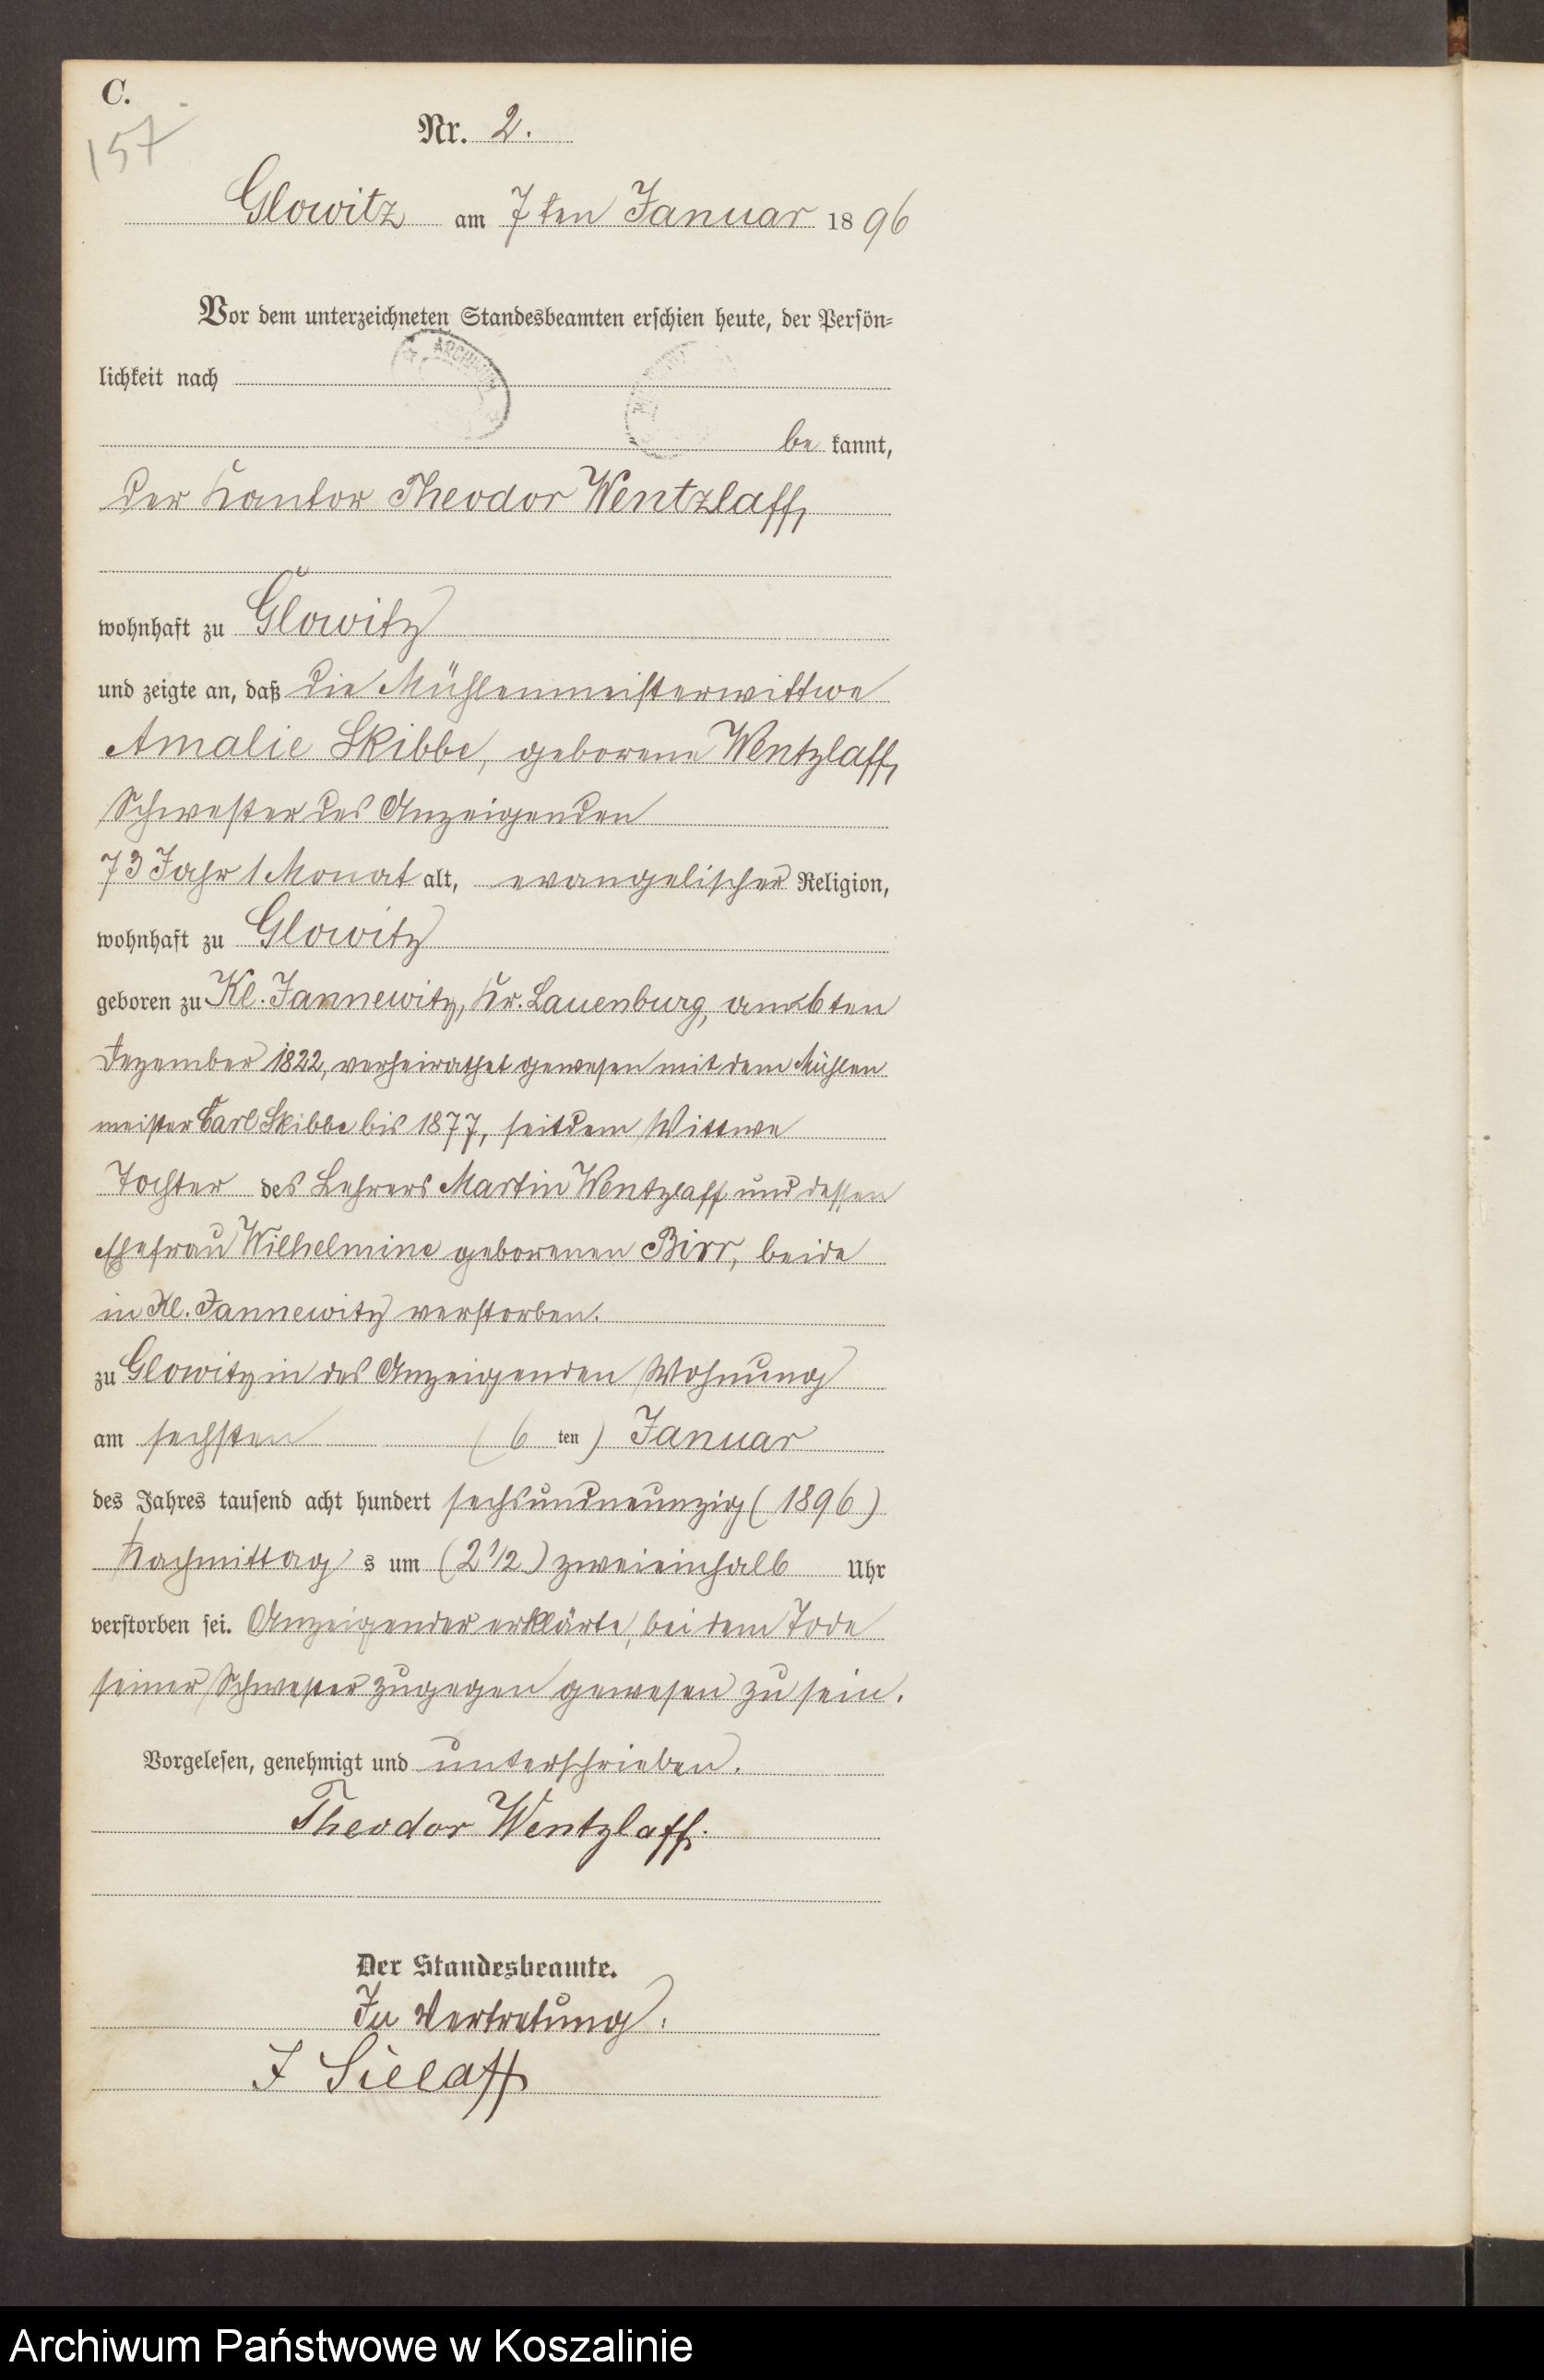 C.
157
Nr. 2.
Glowitz am 7ten Januar 1896
Vor dem unterzeichneten Standesbeamten erschien heute, der Persön-
lichkeit nach
be kannt,
der Kantor Theodor Wentzlaff,
wohnhaft zu Glowitz
und zeigte an, daß die Mühlenmeisterwittwe
Amalie Skibbe, geborene Wentzlaff,
Schwester des Anzeigenden
73 Jahr 1 Monat alt, evangelischer Religion,
wohnhaft zu Glowitz
geboren zu Kl. Jannewitz, Kr. Lauenburg, am 6ten
Dezember 1822, verheirathet gewesen mit dem Mühlen
meister Carl Skibbe bis 1877, seitdem Wittwe
Tochter des Lehrers Martin Wentzlaff und dessen
Ehefrau Wilhelmine geborenen Birr, beide
in Kl. Jannewitz verstorben.
zu Glowitz in des Anzeigenden Wohnung
am sechsten (6 ten) Januar
des Jahres tausend acht hundert sechsundneunzig (1896)
Nachmittag s um (2 1/2) zweieinhalb Uhr
verstorben sei. Anzeigender erklärte, bei dem Tode
seiner Schwester zugegen gewesen zu sein.
Vorgelesen, genehmigt und unterschrieben.
Theodor Wentzlaff.
Der Standesbeamte.
In Vertretung.
J Sielaff
Archiwum Państwowe w Koszalinie